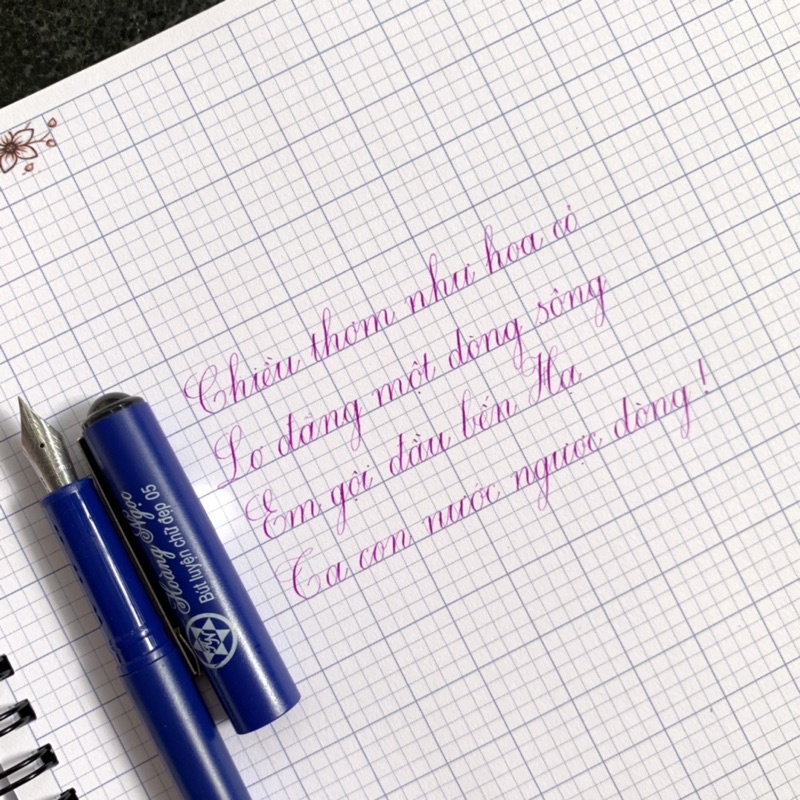 Chiều thơm như hoa cỏ
Lơ đãng một dòng sông
Em gối đầu bến Hạ
Ta con nước ngược dòng!
Hoàng Ngọc
Bút luyện chữ đẹp 05